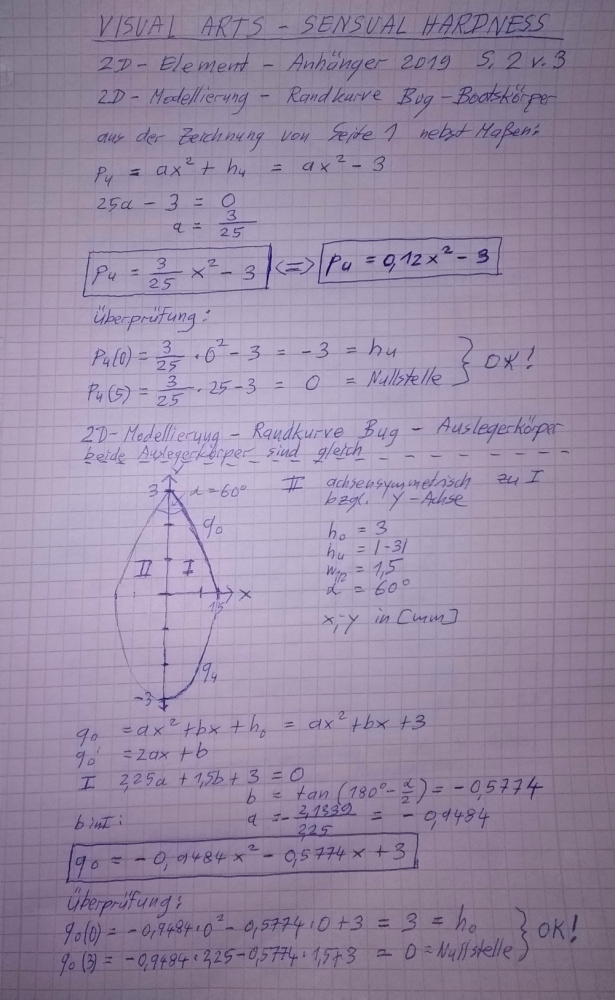 VISUAL ARTS - SENSUAL HARDNESS
2D - Element - Anhänger 2019 S. 2 v. 3
2D - Modellierung - Randkurve Bug - Bootskörper
aus der Zeichnung von Seite 1 nebst Maßen:
p₄ = ax² + h₄ = ax² - 3
25a - 3 = 0
a = 3/25
p₄ = 3/25 x² - 3 <=> p₄ = 0,12x² - 3
Überprüfung:
p₄(0) = 3/25 · 0² - 3 = -3 = h₄
p₄(5) = 3/25 · 25 - 3 = 0 = Nullstelle } OK!
2D - Modellierung - Randkurve Bug - Auslegerkörper
beide Auslegerkörper sind gleich
y
3 α = 60° II achsensymmetrisch zu I
bzgl. y-Achse
q₀
h₀ = 3
h₄ = |-3|
II I w₁/₂ = 1,5
α = 60°
x
1,5
x,-y in [mm]
q₄
-3
q₀ = ax² + bx + h₀ = ax² + bx + 3
q₀' = 2ax + b
I 2,25a + 1,5b + 3 = 0
b = tan (180° - α/2) = -0,5774
b in I: a = - 2,1339/2,25 = -0,9484
q₀ = -0,9484x² - 0,5774x + 3
Überprüfung:
q₀(0) = -0,9484·0² - 0,5774·0 + 3 = 3 = h₀
q₀(3) = -0,9484·2,25 - 0,5774·1,5 + 3 = 0 = Nullstelle } OK!